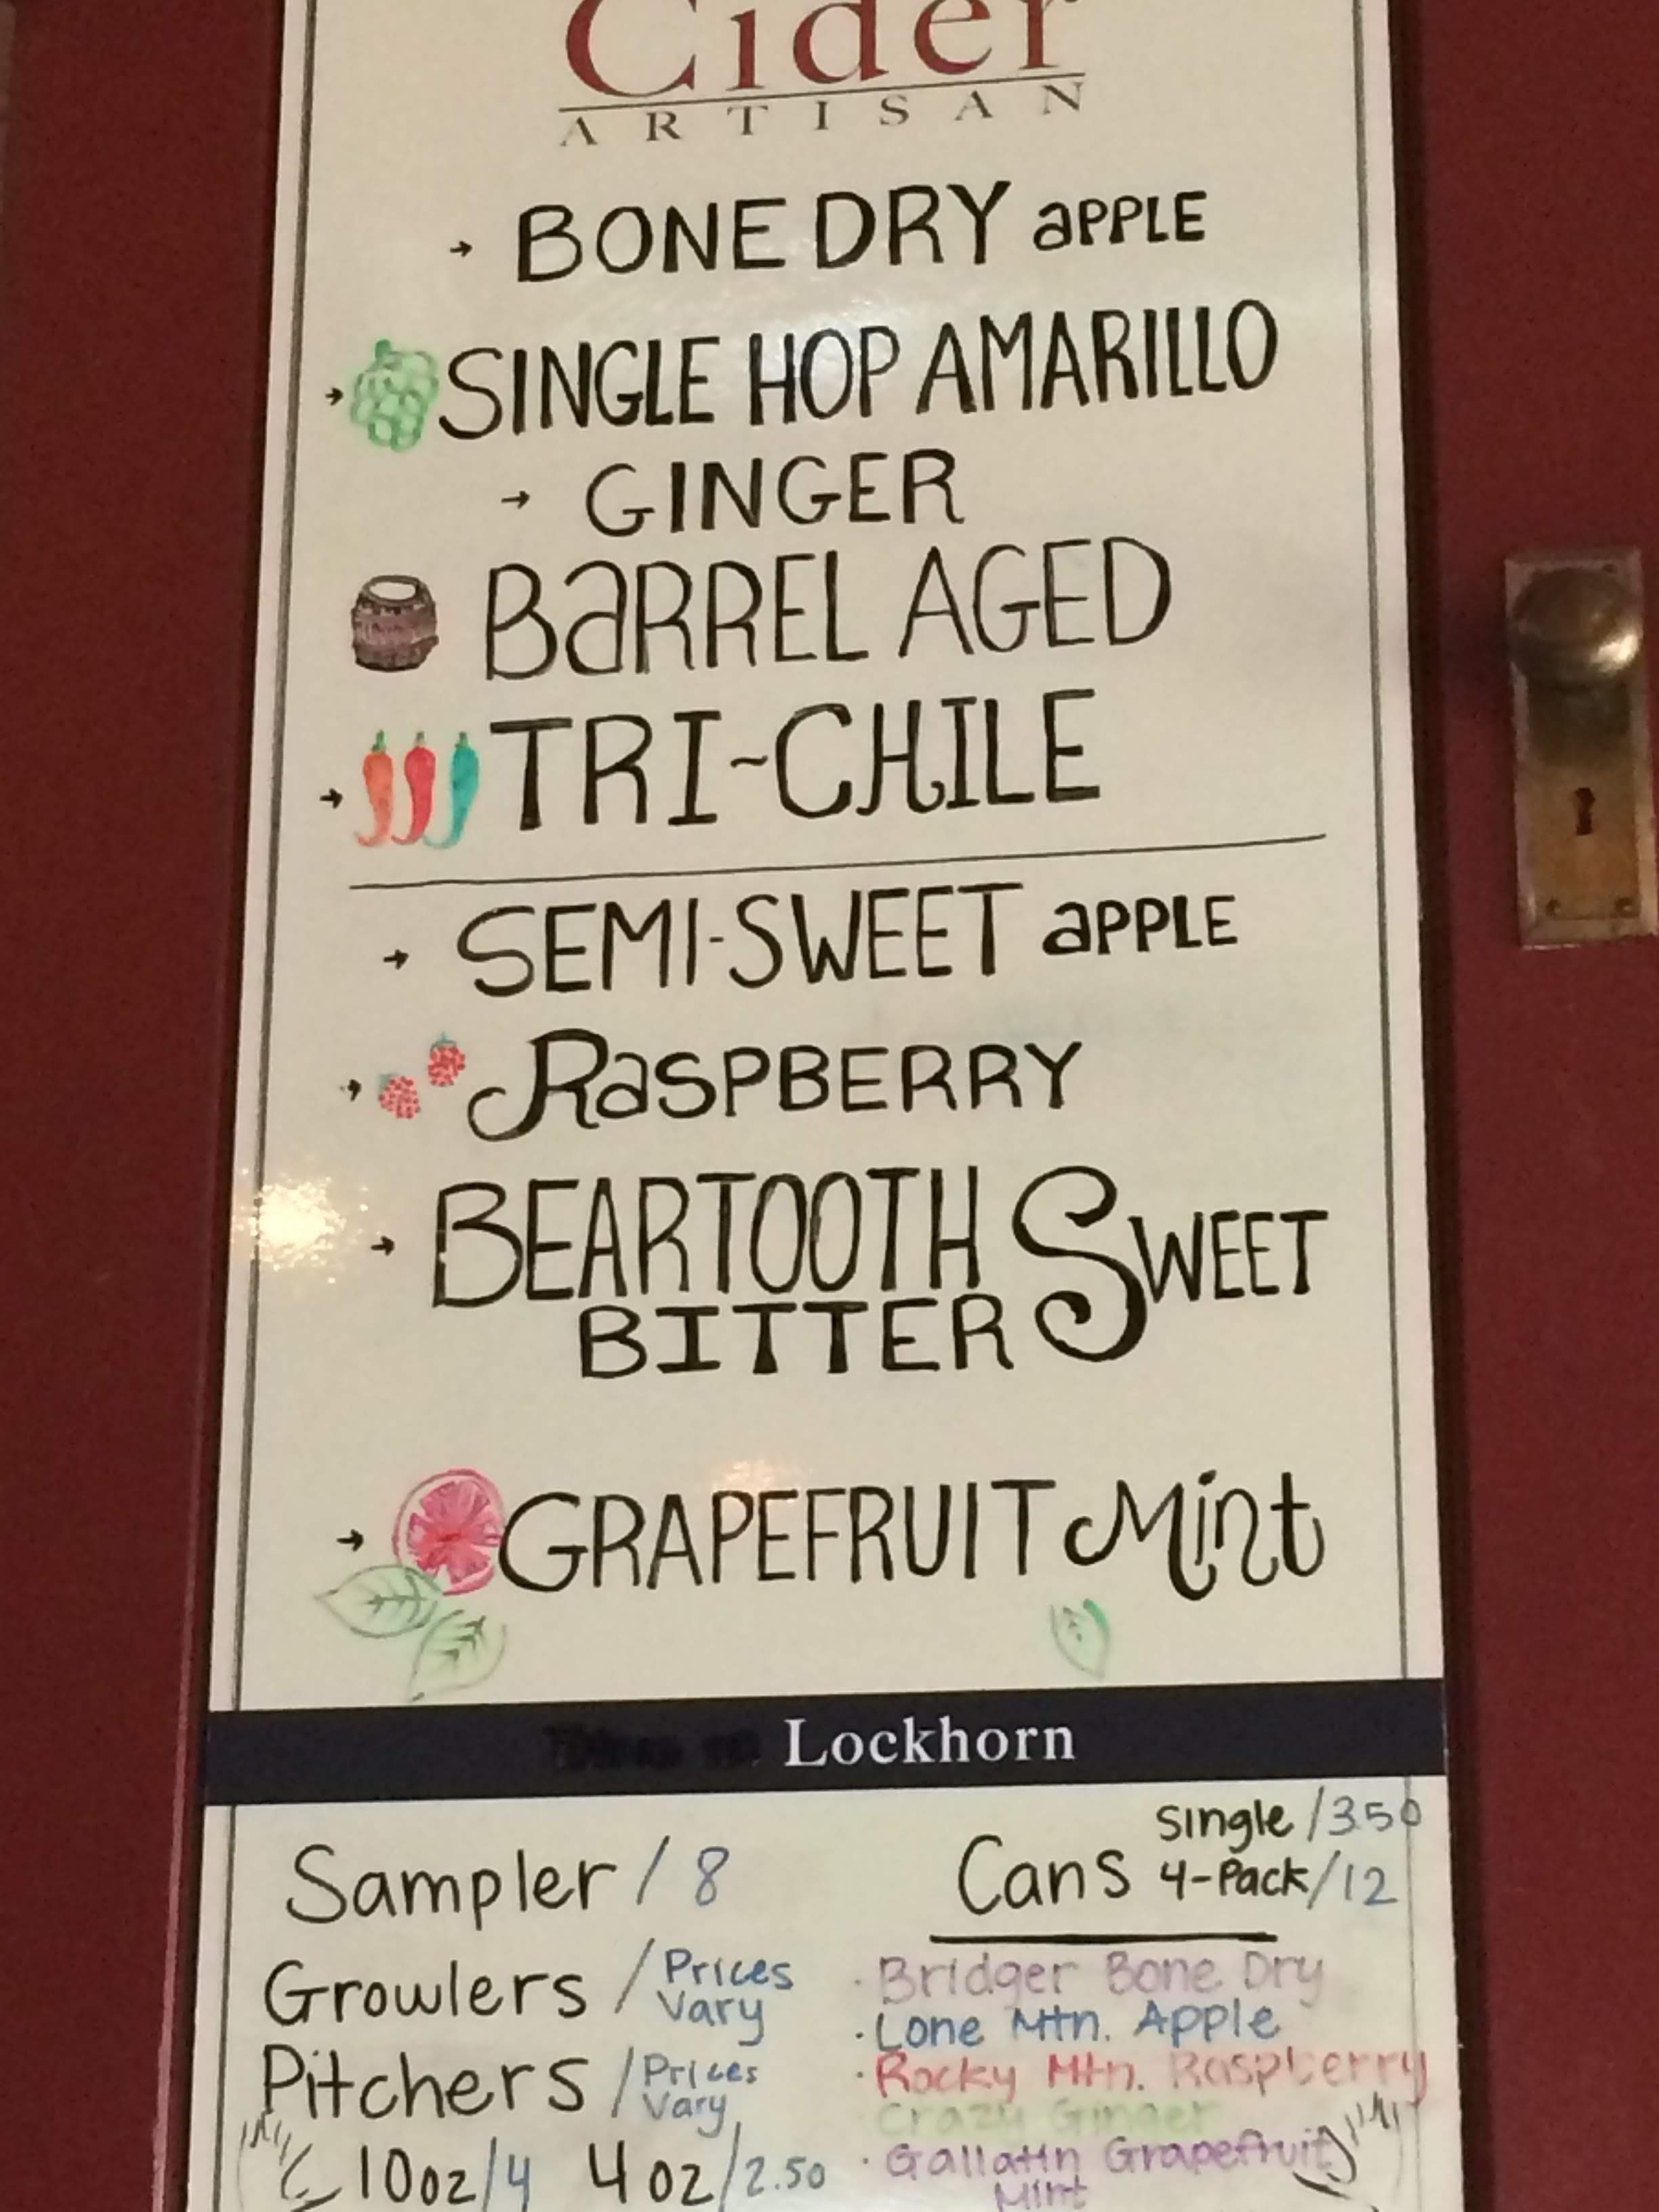 Cider
ARTISAN
→ BONE DRY aPPLE
→ SINGLE HOP AMARILLO
→ GINGER
BaRREL AGED
→ TRI~CHILE
→ SEMI-SWEET aPPLE
→ RaSPBERRY
→ BEARTOOTH SWEET
BITTER
→ GRAPEFRUIT Mint
Lockhorn
Sampler / 8
Cans single /3.50
4-Pack/12
Growlers / Prices Vary
Pitchers / Prices Vary
10oz/4 4oz/2.50
· Bridger Bone Dry
· Lone Mtn. Apple
· Rocky Mtn. Raspberry
Crazy Ginger
· Gallatin Grapefruit
Mint